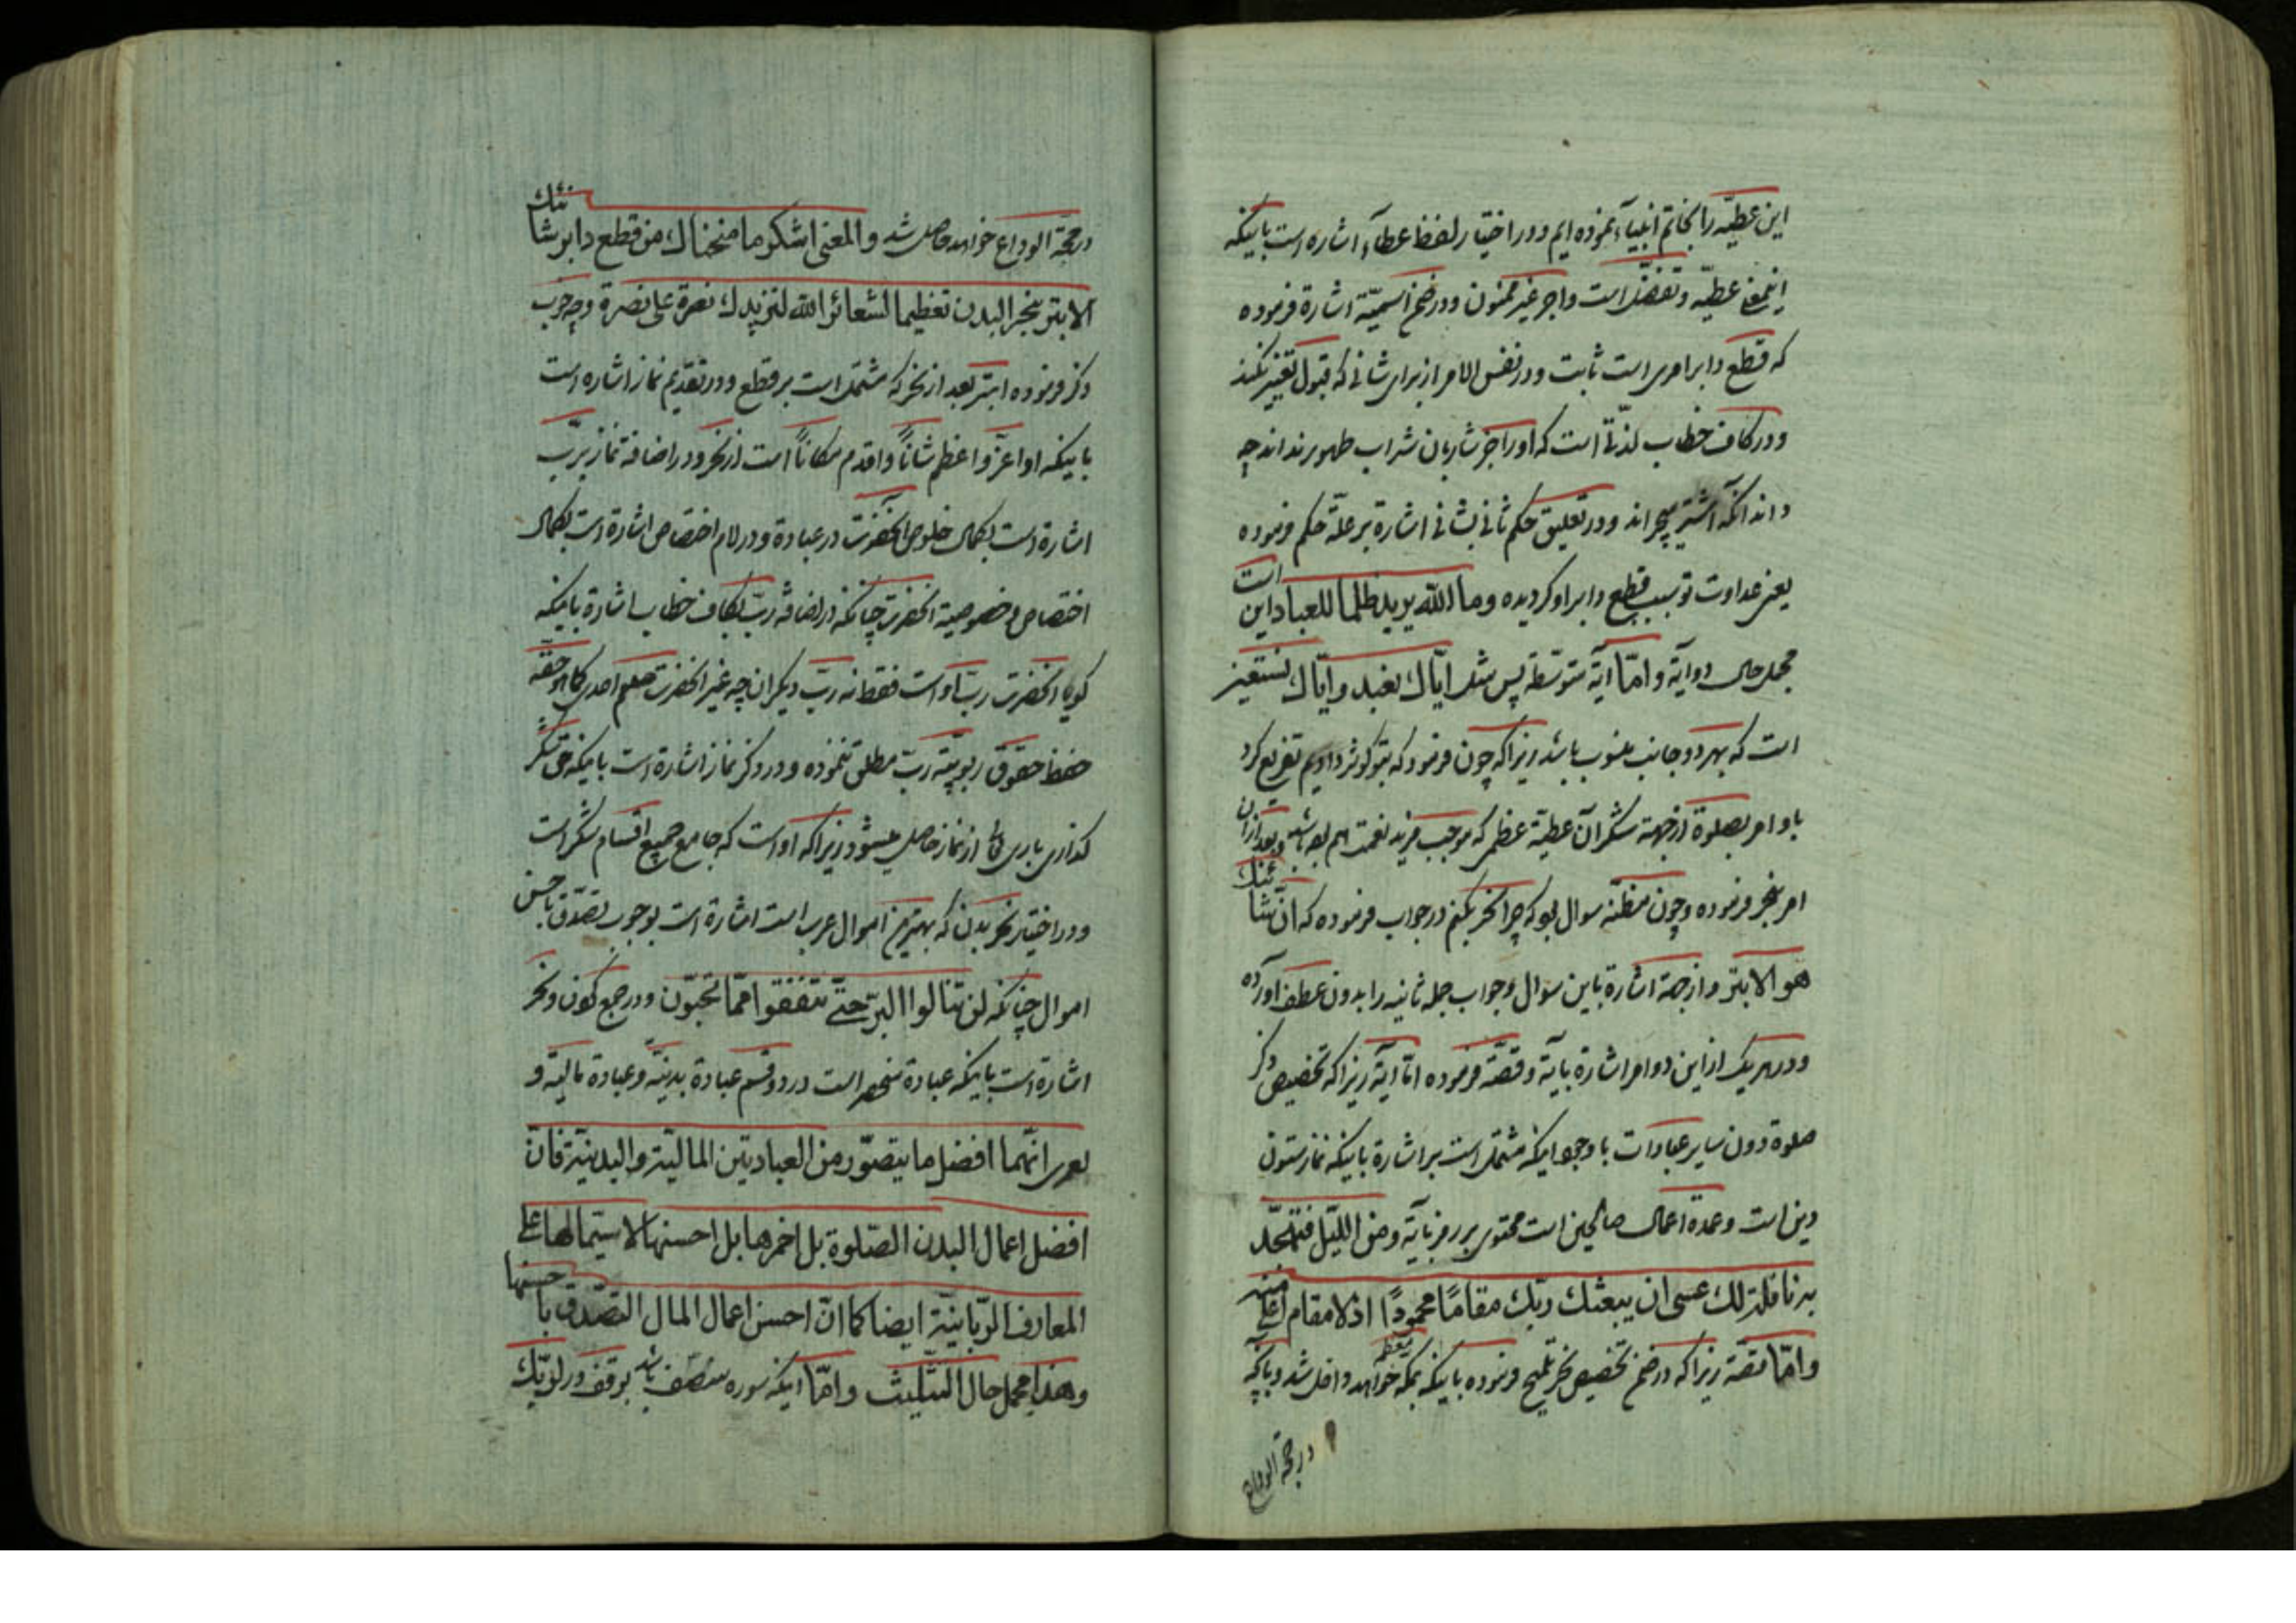 این عطیّه را بخاتم انبیآء نموده ایم ودر اختیار لفظ عطآء اشاره است باینکه
اینمعنی عطیّه وتفضّل است واجر غیر ممنون ودر ضمن اسمیّة اشارة فرموده
که قطع دابر امری است ثابت ودر نفس الامر از برای شانی که قبول تغییر نکند
ودر کاف خطاب لذّتی است که اورا جز شاربان شراب طهور ندانند چه
داند آنکه اشتر میچراند ودر تعلیق حکم ثانی بشانی اشارة بر علّة حکم فرموده
یعنی عداوت تو سبب قطع دابر او کردیده وما الله یرید ظلما للعباد این است
مجمل حال دو آیة وامّا آیة متوسّطه پس مثل ایّاك نعبد وایّاك نستعین
است که بهر دو جانب منسوب باشد زیرا که چون فرمود که بتو کوثر دادیم تفریع کرد
باو امر بصلوة از جهة شکر آن عطیّة عظمی که موجب مزید نعمت هم بوده باشد وبعد از آن
امر بنحر فرموده وچون مظنّه سوال بود که چرا نحر بکنم در جواب فرموده که انّ شانئك
هو الابتر واز جهة اشارة باین سوال وجواب جمله ثانیه را بدون عطف آورده
ودر هر یک از این دو امر اشارة بآیة وقصّة فرموده امّا آیة زیرا که تخصیص ذکر
صلوة دون سایر عبادات با وجود اینکه مشتمل است بر اشارة باینکه نماز ستون
دین است وعمدة اعمال صالحین است محتوی بر رمز بآیة ومن اللیل فتهجّد
به نافلة لك عسی ان یبعثك ربّك مقامًا محمودًا اذ لا مقام اعلی منه
وامّا قصّة زیرا که در ضمن تخصیص نحر تلمیح فرموده باینکه بمکّه معظّمه خواهد داخل شد وبآنچه
در حجّة الوداع
در حجّة الوداع خواهد حاصل شد والمعنی اشکر ما منحناك من قطع دابر شانئك
الابتر بنحر البدن تعظیما لشعائر الله لنزیدك نصرة علی نصرة وچه خوب
ذکر فرموده ابتر بعد از نحر که مشتمل است بر قطع ودر تقدیم نماز اشاره است
باینکه او اعزّ واعظم شانًا واقدم مکانًا است از نحر ودر اضافة نماز بربّ
اشارة است بکمال خلوص آنحضرت در عبادة ودر لام اختصاص اشارة است بکمال
اختصاص وخصوصیة آنحضرت چنانکه در اضافه ربّ بکاف خطاب اشارة باینکه
کویا آنحضرت ربّ او است فقط نه ربّ دیکران چه غیر آنحضرت صلعم احدی کما هو حقّه
حفظ حقوق ربوبیّة ربّ مطلق ننموده ودر ذکر نماز اشارة است باینکه حقّ شکر
کذاری باری تعالی از نماز حاصل میشود زیرا که او است که جامع جمیع اقسام شکر است
ودر اختیار نحر بدن که بهترین اموال عرب است اشارة است بوجوب تصدّق باحسن
اموال چنانکه لن تنالوا البرّ حتّی تنفقوا ممّا تحبّون ودر جمع کون ونحر
اشارة است باینکه عبادة منحصر است در دو قسم عبادة بدنیّه وعبادة مالیّه و
لعمری انّهما افضل ما یتصوّر من العبادتین المالیّة والبدنیّة فانّ
افضل اعمال البدن الصّلوة بل اخمرها بل احسنها لاشتمالها علی
المعارف الرّبانیّة ایضا کما انّ احسن اعمال المال التصدّق باحسنها
وهذا مجمل حال التثلیث وامّا اینکه سوره متصف باشد بوقف ور لوبّك